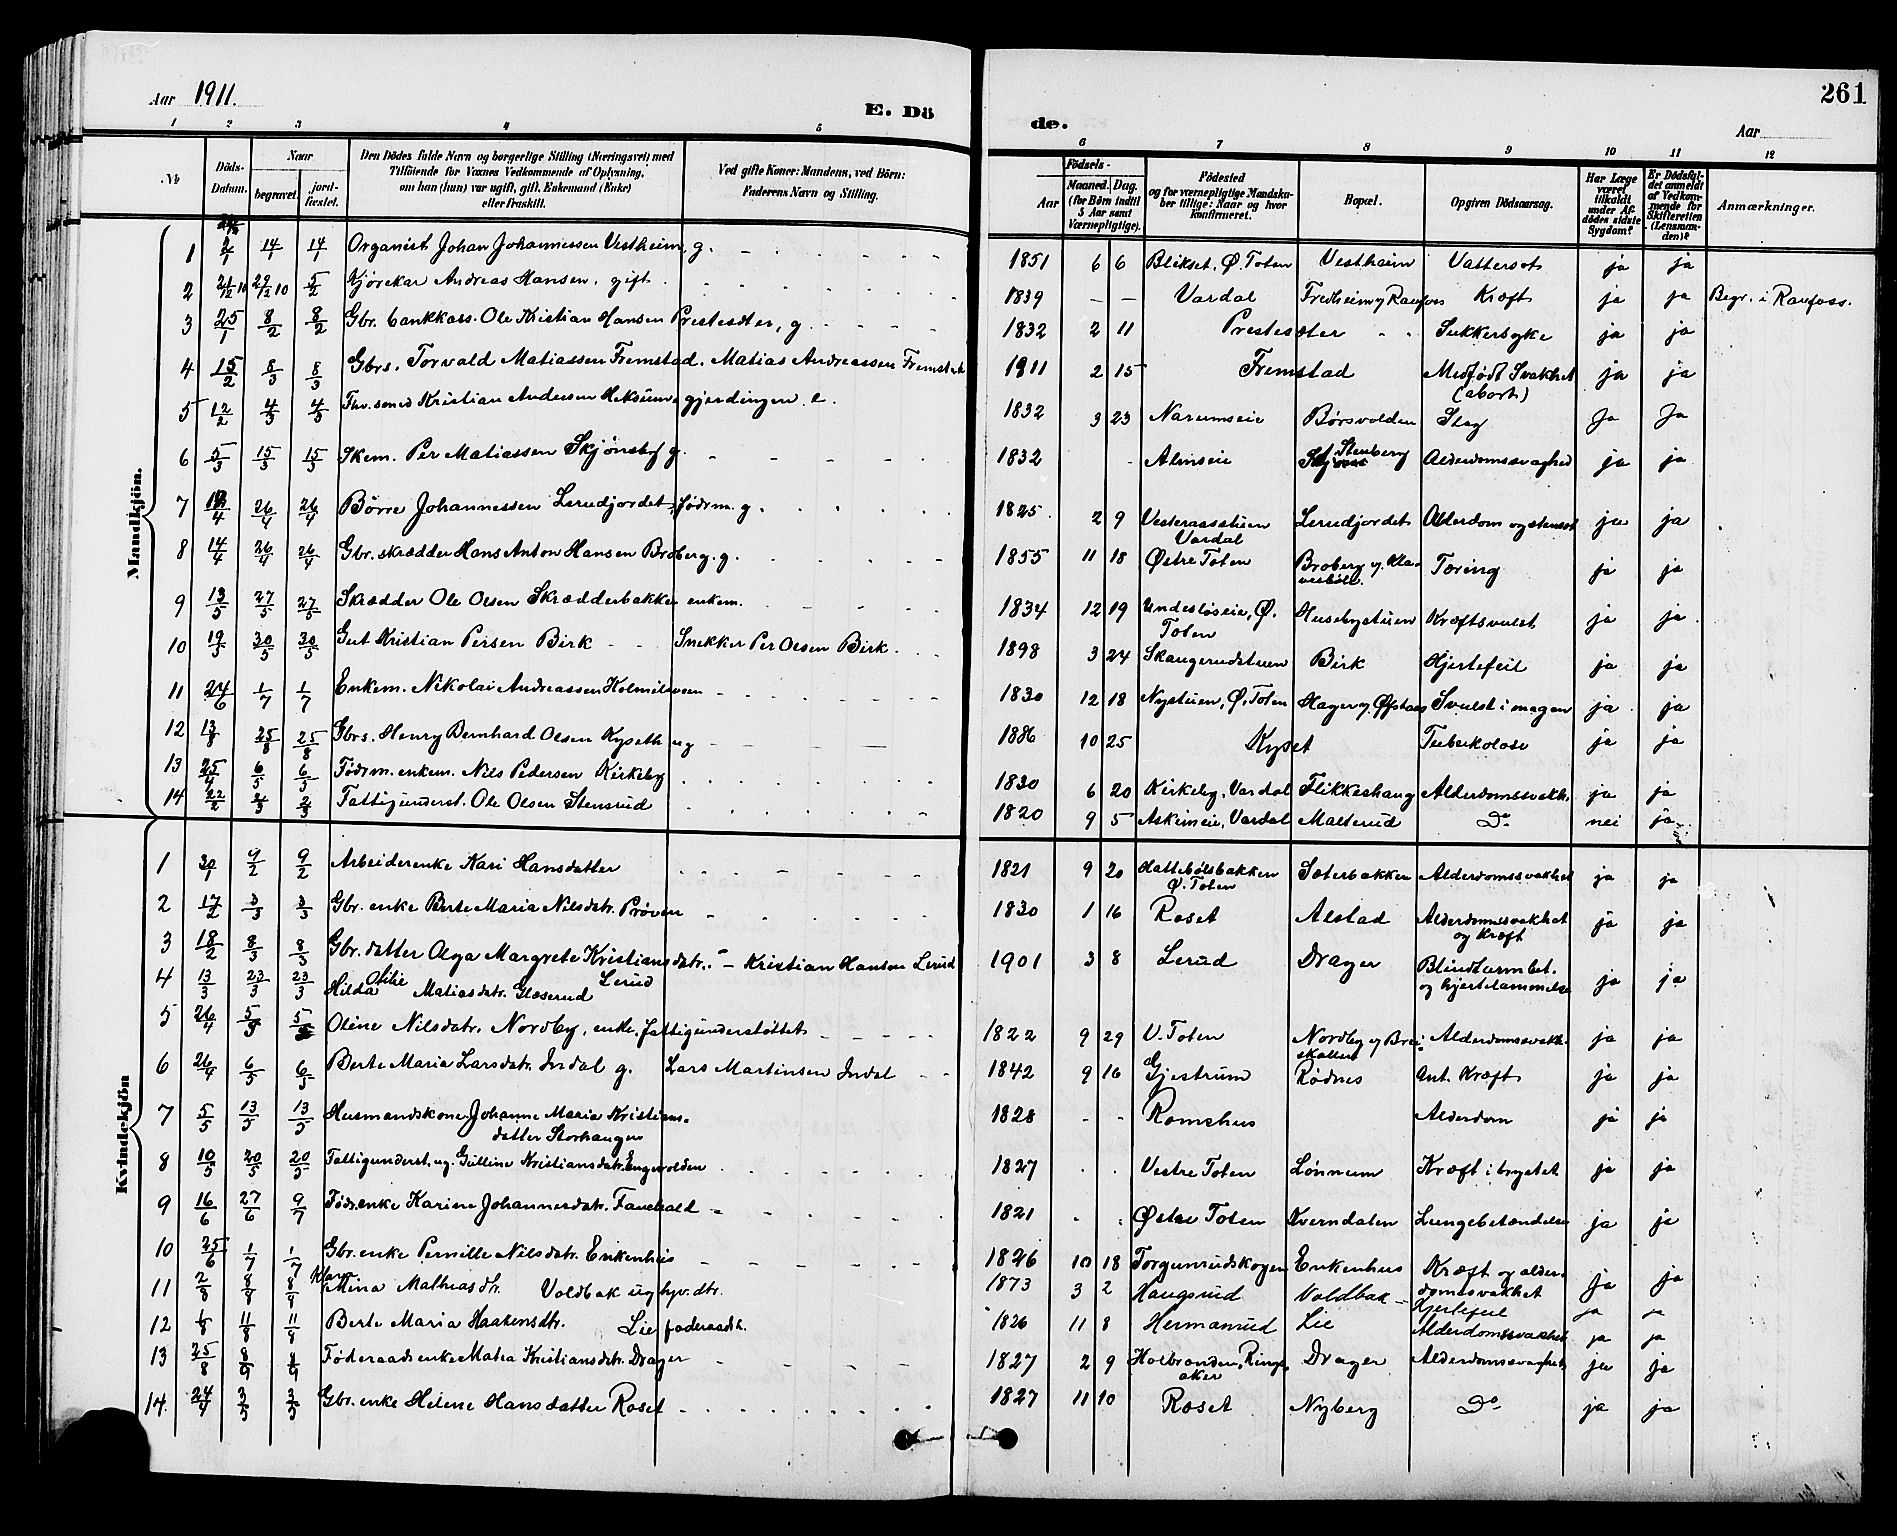 Aar 1911.
E. Dö
de.
261
Aar
1 2 3 4 5 6 7 8 9 10 11 12
No
Döds-Datum.
Naar
begravet.
jord-fæstet.
Den Dödes fulde Navn og borgerlige Stilling (Næringsvei) med
Tilföiende for Voxnes Vedkommende af Oplysning,
om han (hun) var ugift, gift, Enkemand (Enke)
eller fraskilt.
Ved gifte Koner: Mandens, ved Börn:
Faderens Navn og Stilling.
Födsels-
Aar
Maaned. Dag.
(for Börn indtil
5 Aar samt
Værnepligtige).
Födested
og for værnepligtige Mandska-
ber tillige: Naar og hvor
konfirmeret.
Bopæl.
Opgiven Dödsaarsag.
Har Læge
været
tilkaldt
under Af-
dödes sidste
Sygdom?
Er Dödsfal-
det anmeldt
af Vedkom-
mende for
Skifteretten
(Lensman-
den)?
Anmærkninger.
Mandkjön.
1 2/1 14/1 14/1 Organist Johan Johannessen Vestheim, g. 1851 6 6 Blikset, Ø. Toten Vestheim Vattersot ja ja
2 21/12 10 29/12 10 5/2 Kjørekar Andreas Hansen, gift. 1839 Vardal Fredheim y Raufoss Kræft ja ja Begr. i Raufoss.
3 25/1 8/2 8/2 Gbr. bankkass. Ole Kristian Hansen Prestesæter, g. 1832 2 11 Prestesæter Sukkersyke ja ja
4 15/2 8/3 8/3 Gbrs. Torvald Matiassen Fremstad. Matias Andreassen Fremstad 1911 2 15 Fremstad Medfødt Svakhet (abort) ja ja
5 12/2 4/3 4/3 Kristian Andersen gjerdingen e. 1832 3 23 Narumseie Børsvolden Slag Ja Ja
6 5/3 15/3 15/3 Skem. Per Matiassen Skjønsby g. 1832 Almseie Stenberg Alderdomssvaghed ja ja
7 /4 26/4 26/4 Børre Johannessen Lerudjordet, fødrm. g. 1825 2 9 Vesteraasstuen Vardal Lerudjordet Alderdom og ja ja
8 14/4 26/4 26/4 Gbr. skrædder Hans Anton Hansen Broberg. g. 1855 11 18 Østre Toten Broberg y. Tæring ja ja
9 13/5 27/5 27/5 Skrædder Ole Olsen Skrædderbakken enkem. 1834 12 19 Undesløseie, Ø. Toten Husebystuen Kræftsvulst ja ja
10 19/5 30/5 30/5 Gut Kristian Persen Birk Snekker Per Olsen Birk. 1898 3 24 Skangerudstuen Birk Hjertefeil ja ja
11 24/6 1/7 1/7 Enkem. Nikolai Andreassen Holmilsveen 1830 12 18 Nystuen, Ø. Toten Hager y. Svulst i magen ja ja
12 13/8 25/8 25/8 Gbrs. Henry Bernhard Olsen Kyseth ug 1886 10 25 Kyset Tuberkolose ja ja
13 25/4 6/5 6/5 Fødrm. enkem. Nils Pedersen Kirkeby 1830 6 20 Kirkeby, Vardal Flikkeshaug Alderdomssvakh. ja ja
14 22/2 3/3 3/3 Fattigunderst. Ole Olsen Stensrud 1820 9 5 Askimeie, Vardal Malterud Do nei ja
Kvindekjön
1 30/1 9/2 9/2 Arbeiderenke Kari Hansdatter 1821 9 20 Hattebølsbakken Ø. Toten Sæterbakken Alderdomssvakhet ja ja
2 17/2 3/3 3/3 Gbr. enke Berte Maria Nilsdatr. Prøven 1830 1 16 Roset Alstad Alderdomssvakhet og kræft ja ja
3 18/2 8/3 8/3 Gbr. datter Olga Margrete Kristiansdatr. Lerud Kristian Hansen Lerud 1901 3 8 Lerud Drager Blindtarmbet. og hjertelammelse ja ja
4 13/3 23/3 23/3 Hilda Otilie Matiasdatr. Glæserud
5 26/4 5/5 5/5 Oline Nilsdatr. Nordby, enke, fattigunderstøttet 1822 9 29 V. Toten Nordby y Brei-skallen Alderdomssvakh. ja ja
6 26/4 6/5 6/5 Berte Maria Larsdatr. Indal g. Lars Martinsen Indal 1842 9 16 Gjestrum Rødnes Ant. Kræft ja ja
7 5/5 13/5 13/5 Husmandskone Johanne Maria Kristians-datter Storhaugen 1828 Romshus Alderdom ja ja
8 10/5 20/5 20/5 Fattigunderst. ug. Gulline Kristiansdatr. Engevolden 1827 Vestre Toten Lønnum Kræft i brystet ja ja
9 16/6 27/6 9/7 Fødr.enke Karine Johannesdatr. Fauchald 1821 Østre Toten Kverndalen Lungebetændelse ja ja
10 25/6 1/7 1/7 Gbr. enke Pernille Nilsdatr. Enkenhus 1826 10 18 Torgunrudskogen Enkenhus Kræft og alder-domssvakhet ja ja
11 2/8 8/8 8/8 Klara Mina Mathiasdtr. Voldbak ug hyv. dtr. 1873 3 2 Haugsrud Voldbak Hjertefeil ja ja
12 1/8 11/8 11/8 Berte Maria Haakensdtr. Lie føderaadk. 1826 11 8 Hermanrud Lie Alderdomssvakhet ja ja
13 25/8 8/9 8/9 Føderaadsenke Matea Kristiansdtr. Drager 1827 2 9 Holbranden, Rings-aker Drager Alderdomssvaghet ja ja
14. 24/4 3/5 3/5 Gbr. enke Helene Hansdatter Roset 1827 11 10 Roset Nyberg Do ja ja